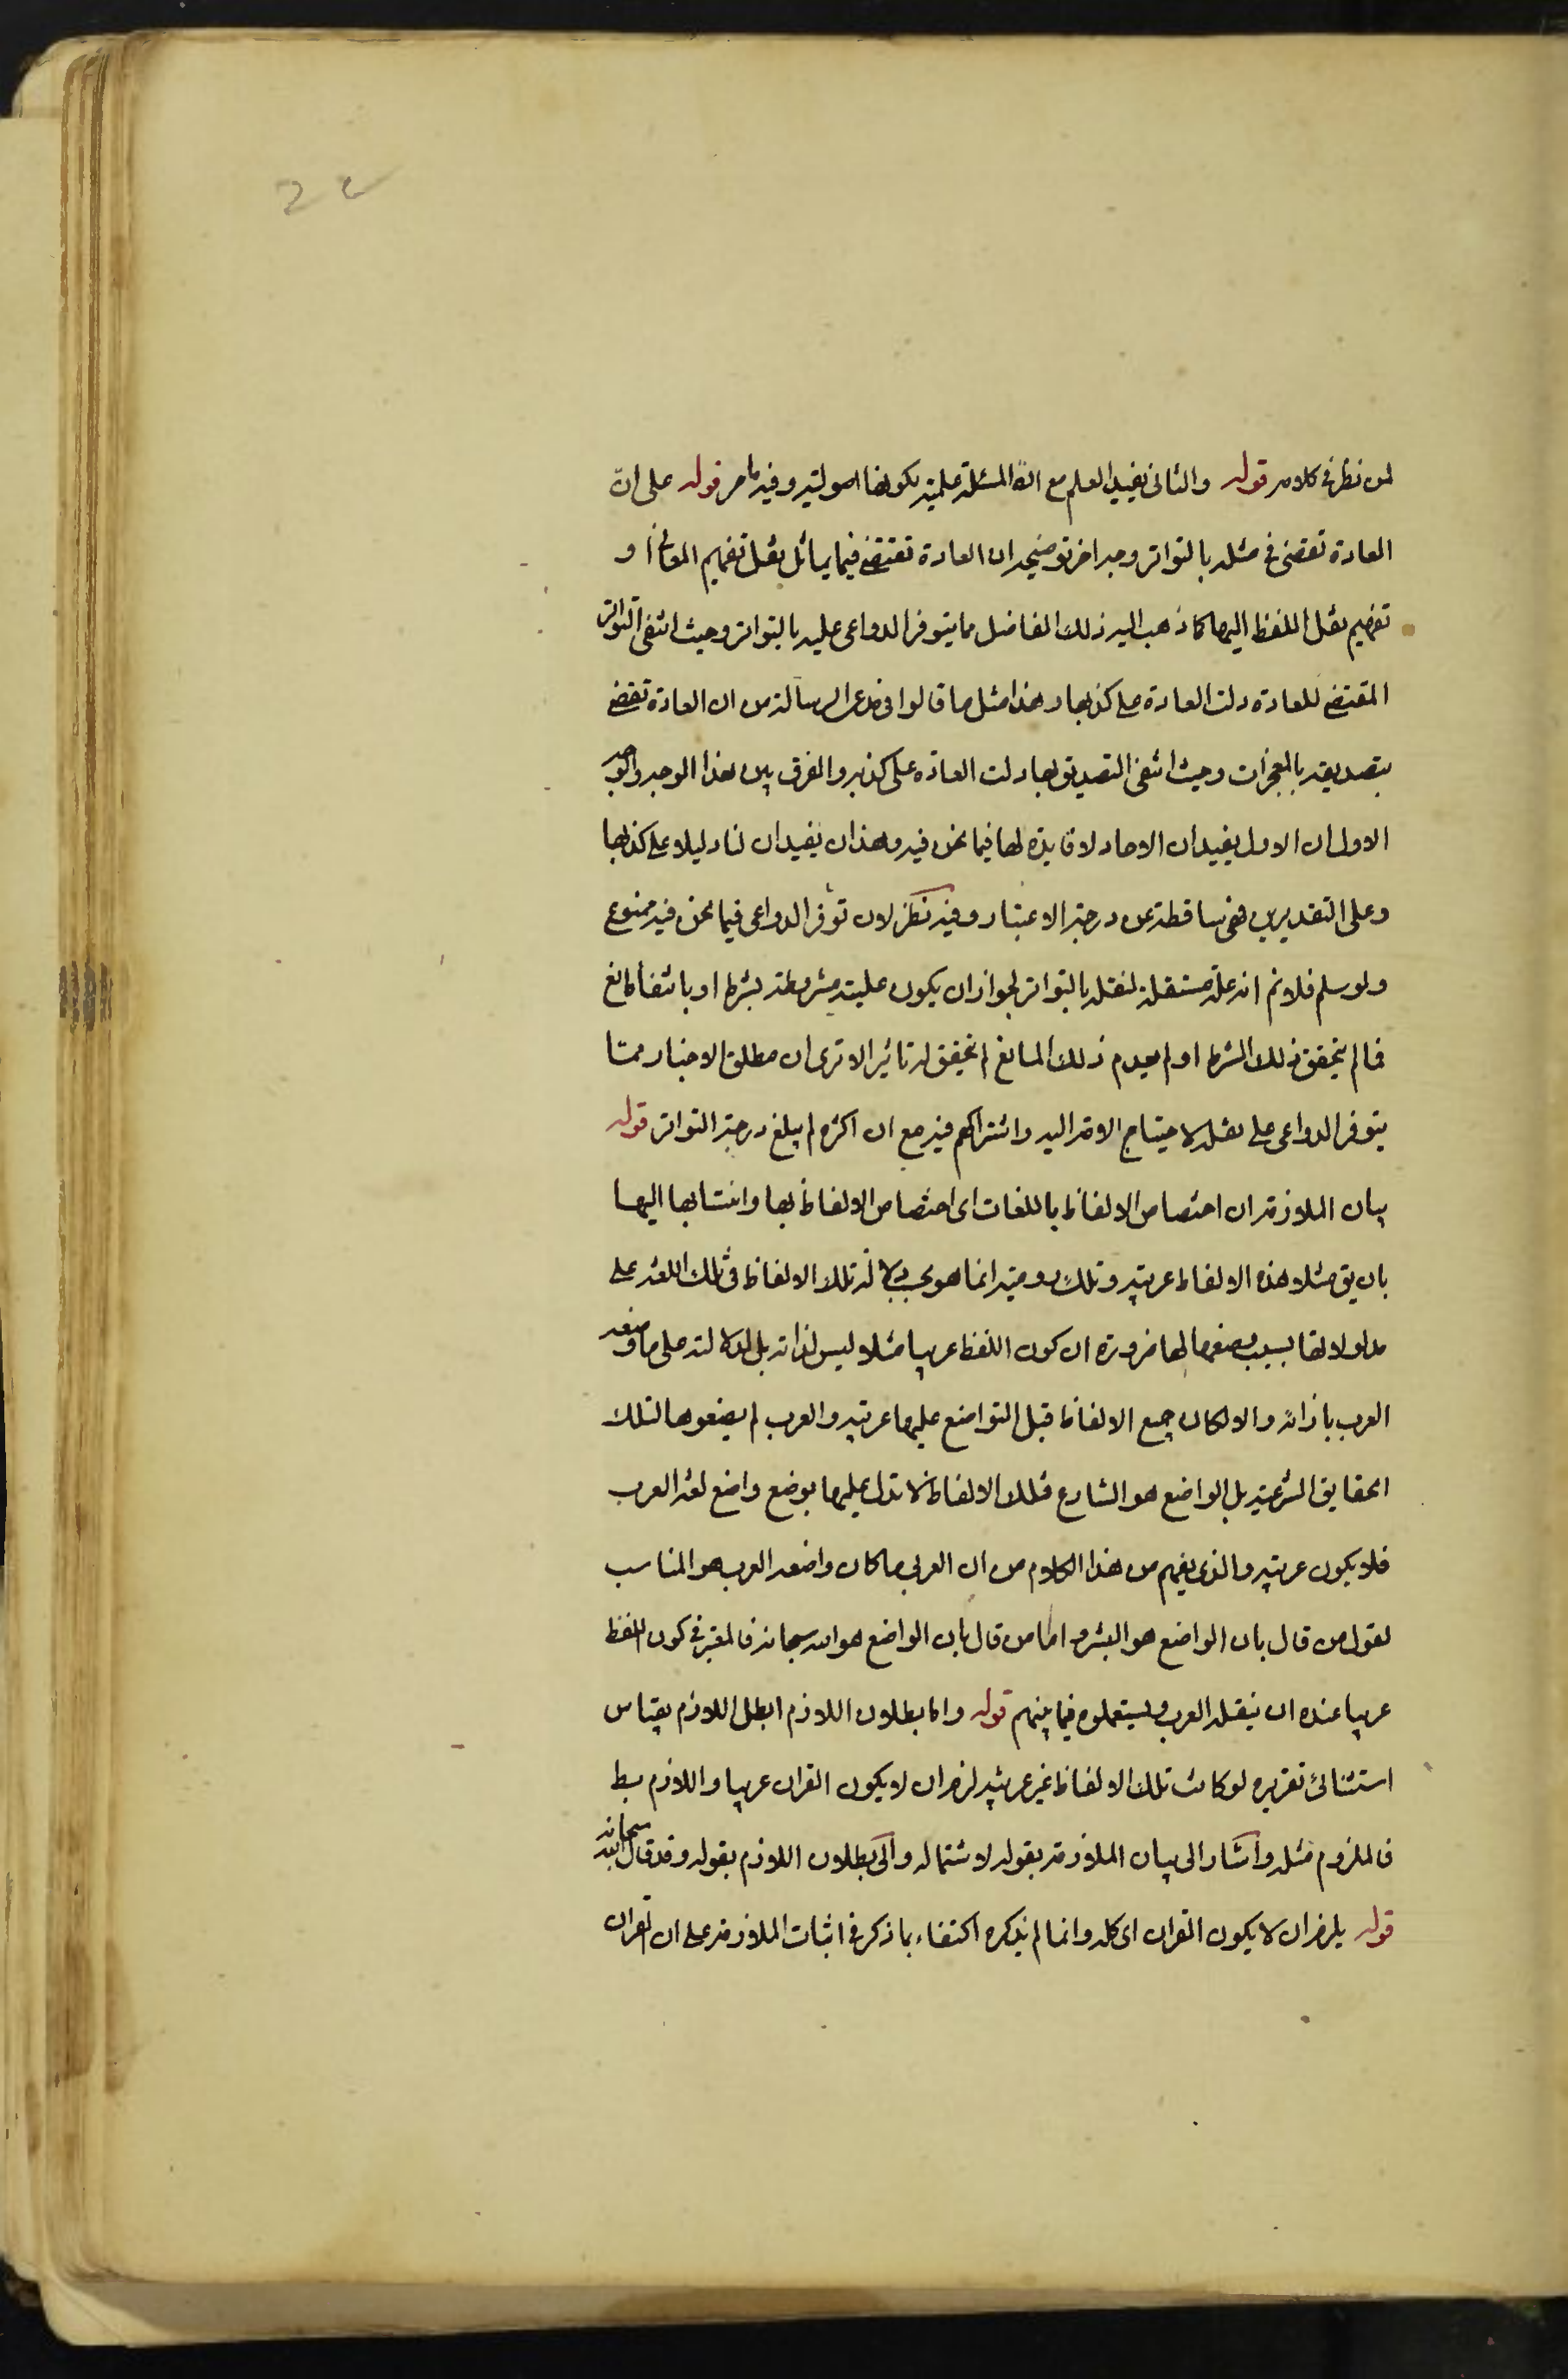 22
لمن نظر في كلامه قوله والثاني يفيد العلم مع ان المسئلة علمية بكونها اصولية وفيه ما مر قوله على ان
العادة تقضى في مثله بالتواتر وجه اخر توضيحه ان العادة تقتضي فيما يماثل نقل تفهيم المعاني او
تفهيم نقل اللفظ اليها كما ذهب اليه ذلك الفاضل مما يتوفر الدواعى عليه بالتواتر وحيث انتفى التواتر
المقتضي للعادة دلت العادة على كذبها وهذا مثل ما قالوا في مدعى الرسالة من ان العادة تقتضي
بتصديقه بالمعجزات وحيث انتفى التصديق بها دلت العادة على كذبه والفرق بين هذا الوجه والوجه
الاول ان الاول يفيد ان الاحاد لا فايدة لها فيما نحن فيه وهذا ان يفيد ان لنا دليلا على كذبها
وعلى التقديرين فهى ساقطة عن درجة الاعتبار وفيه نظر لان توفر الدواعى فيما نحن فيه ممنوع
ولو سلم فلا نم انه علة مستقلة لنقله بالتواتر لجواز ان يكون عليته مشروطة بشرط او بانتفاء مانع
فما لم يتحقق ذلك الشرط او لم يعدم ذلك المانع لم يتحقق له تاثير الا ترى ان مطلق الاخبار مما
يتوفر الدواعى على نقله لاحتياج الامة اليه واشتراكهم فيه مع ان اكثره لم يبلغ درجة التواتر قوله
بيان الملازمة ان اختصاص الالفاظ باللغات اى اختصاص الالفاظ بها وانتسابها اليها
بان يق مثلا هذه الالفاظ عربية وتلك رومية انما هو بحسب دلالة تلك الالفاظ في تلك اللغة على
مدلولاتها بسبب وضعها لها ضرورة ان كون اللفظ عربيا مثلا ليس لذاته بل لدلالته على ما وضعه
العرب بازائه والا لكان جميع الالفاظ قبل التواضع عليها عربية والعرب لم يضعوها لتلك
الحقايق الشرعية بل الواضع هو الشارع فتلك الالفاظ لا تدل عليها بوضع واضع لغة العرب
فلا يكون عربية والذى يفهم من هذا الكلام من ان العربى ما كان واضعه العرب هو المناسب
لقول من قال بان الواضع هو البشر واما من قال بان الواضع هو الله سبحانه فالمعتبر في كون اللفظ
عربيا عنده ان ينقله العرب ويستعملوه فيما بينهم قوله واما بطلان اللازم ابطل اللازم بقياس
استثنائى تقريره لو كانت تلك الالفاظ غير عربية لزم ان لا يكون القران عربيا واللازم بط
فالملزوم مثله واشار الى بيان الملازمة بقوله لاشتماله والى بطلان اللازم بقوله وقد قال الله سبحانه
قوله يلزم ان لا يكون القران اى كله وانما لم يذكره اكتفاء بما ذكر في اثبات الملازمة على ان القران